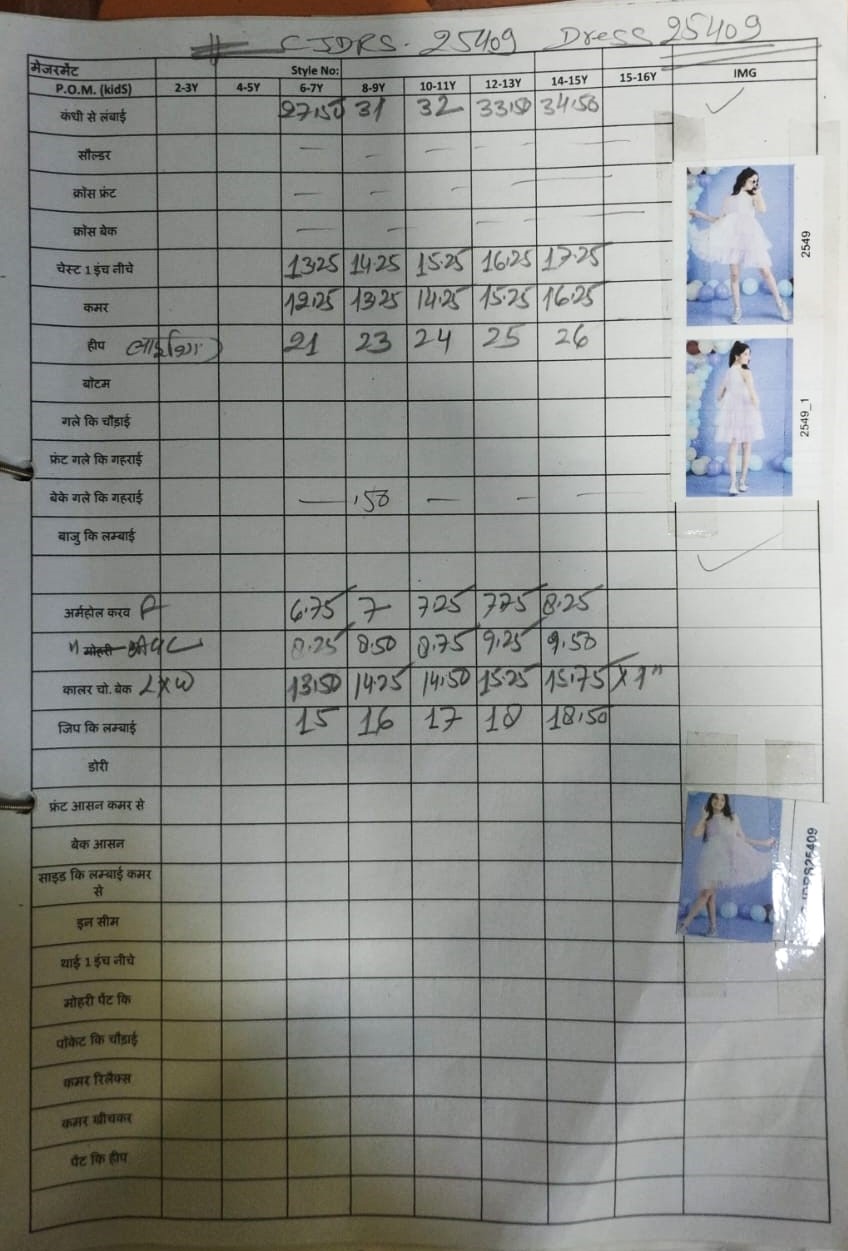 CJDRS. 25409 Dress 25409
मेजरमेंट Style No:
P.O.M. (kidS) 2-3Y 4-5Y 6-7Y 8-9Y 10-11Y 12-13Y 14-15Y 15-16Y IMG
कंधी से लंबाई 27.50 31 32 33.50 34.50
सौल्डर — — — — —
क्रोंस फ्रंट — — — — —
क्रोंस बेक — — — — —
चेस्ट 1 इंच नीचे 13.25 14.25 15.25 16.25 17.25
कमर 12.25 13.25 14.25 15.25 16.25
हीप 21 23 24 25 26
बॉटम
गले कि चौड़ाई
फ्रंट गले कि गहराई
बेके गले कि गहराई — .50 — — —
बाजु कि लम्बाई
अर्महोल करव 6.75 7 7.25 7.75 8.25
मोहरी 8.25 8.50 8.75 9.25 9.50
कालर चो. बेक L×W 13.50 14.25 14.50 15.25 15.75 × 1"
जिप कि लम्बाई 15 16 17 18 18.50
डोरी
फ्रंट आसन कमर से
बेक आसन
साइड कि लम्बाई कमर
से
इन सीम
थाई 1 इंच नीचे
मोहरी पेंट कि
पॉकेट कि चौड़ाई
कमर रिलैक्स
कमर खीचकर
पेंट कि हीप
2549
2549_1